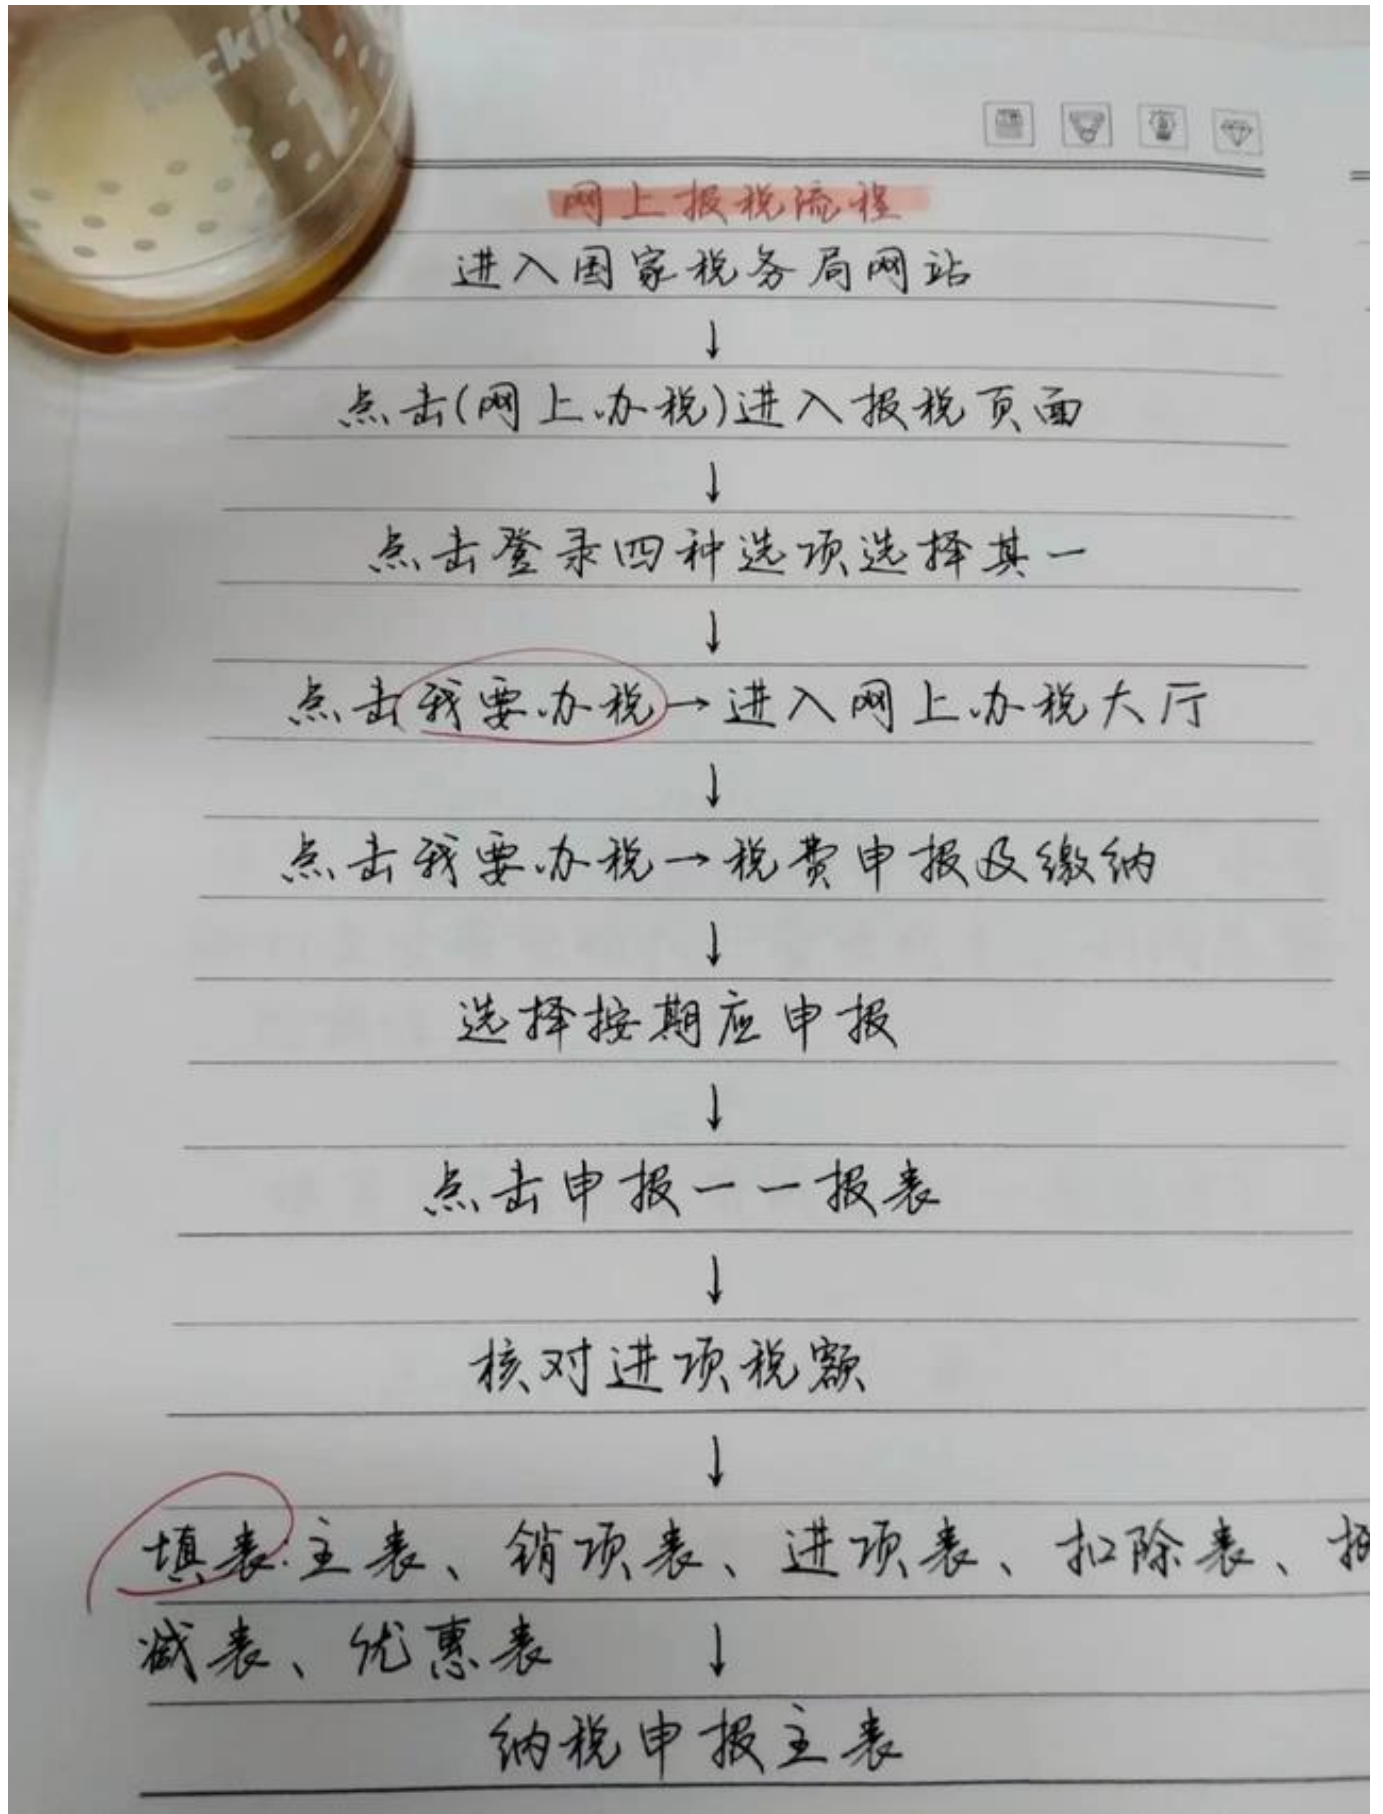 luckin
网上报税流程
进入国家税务局网站
↓
点击(网上办税)进入报税页面
↓
点击登录四种选项选择其一
↓
点击我要办税→进入网上办税大厅
↓
点击我要办税→税费申报及缴纳
↓
选择按期应申报
↓
点击申报一一报表
↓
核对进项税额
↓
填表:主表、销项表、进项表、扣除表、
减表、优惠表 ↓
纳税申报主表